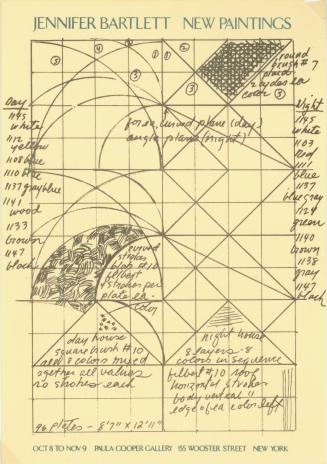 JENNIFER BARTLETT NEW PAINTINGS
round
brush # 7
plaid
color
Day
1145
white
1112
yellow
1108 blue
1110 blue
1137 gray blue
1141
wood
1133
brown
1147
black
Night
1145
white
1103
red
1111
blue
1137
blue gray
1124
green
1140
brown
1138
gray
1147
black
for ea. curved plane (day)
angle plane (night)
curved
strokes
filbert
4 strokes per
plate ea.
color
day house
square brush #10
8 colors mixed
together all values
20 strokes each
night house
8 layers - 8
colors in sequence
filbert #10 roof
horizontal strokes
body vertical "
edge of ea color left
96 plates - 8'7" x 12'11"
OCT 8 TO NOV 9 PAULA COOPER GALLERY 155 WOOSTER STREET NEW YORK